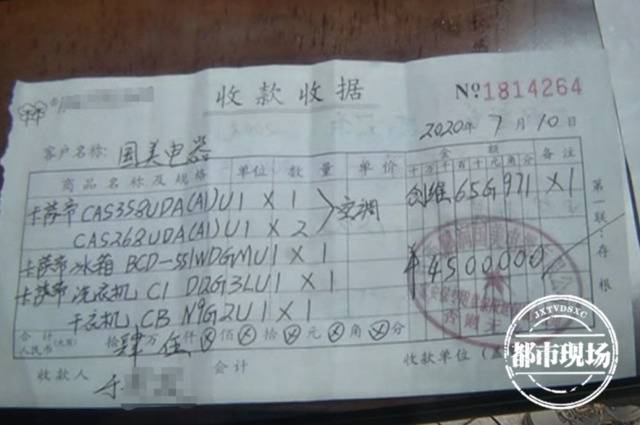 收款收据 №1814264
2020年7月10日
客户名称: 国美电器
商品名称及规格 单位 数量 单价 金额 备注
十万千百十元角分
卡萨帝 CAS358UDA(A1)U1 X 1 空调 创维65G971 X1
CAS268UDA(A1)U1 X 2
卡萨帝 冰箱 BCD-551WDGMU1 X 1 ¥4500000
卡萨帝 洗衣机 C1 D12G3LU1 X 1
干衣机 CB N9G2U1 X 1
合计人民币(大写) 拾肆万伍仟佰拾元角分
收款人 会计 收款单位(盖
第一联:存根
JXTVDSXC
都市现场